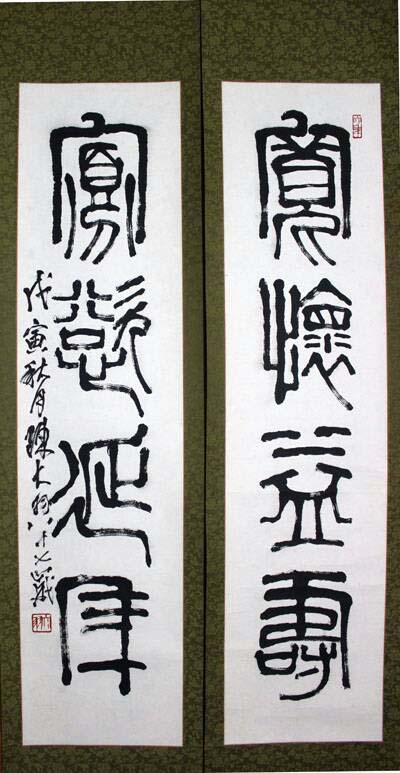 寬懷益壽
寡慾延年
戊寅秋月陳大羽八十七歲